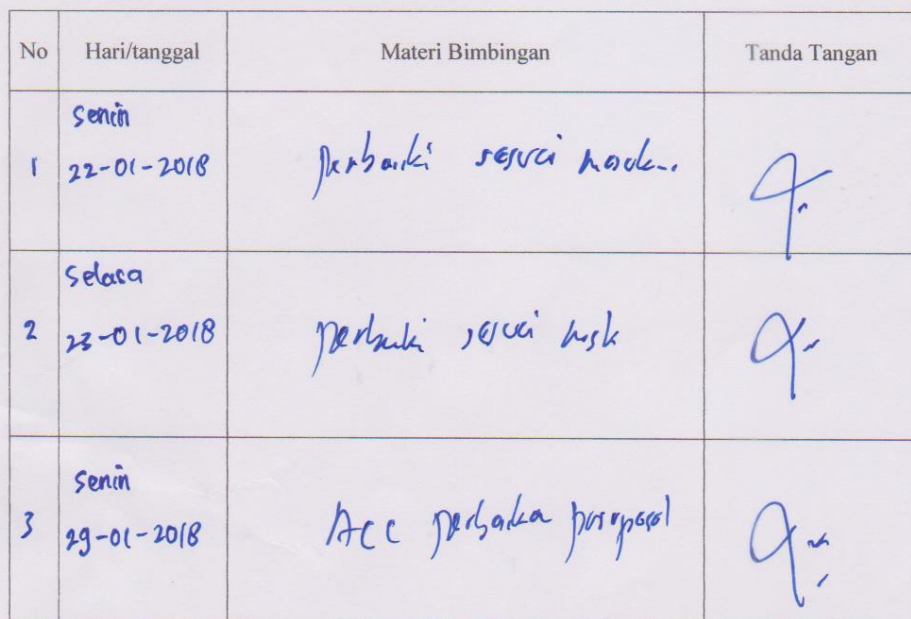 No Hari/tanggal Materi Bimbingan Tanda Tangan
Senin
1 22-01-2018 perbaiki sesuai
Selasa
2 23-01-2018 perbaiki sesuai
Senin
3 29-01-2018 Acc perbaika proposal